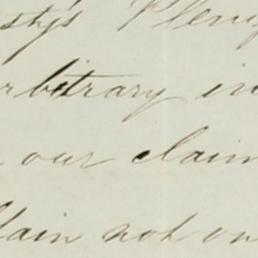 sty's Pleny
rbitrary in
our claim
tain not on